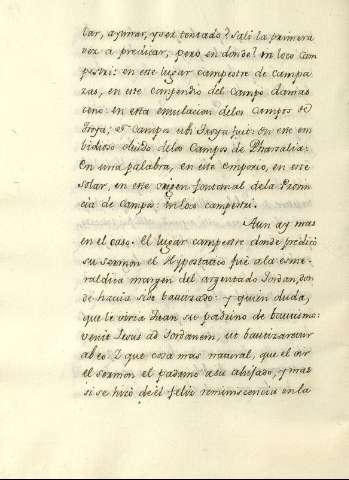 tar, ayunar, y ser tentado? Salí la primera
vez a predicar, pero en donde? in loco cam
pestri: en este lugar campestre de Campa
zas, en este compendio del Campo damas
ceno: en esta emulacion delos Campos de
Troya; et Campus ubi Troya fuit: en este em
bidioso olvido delos Campos de Pharsalia:
en una palabra, en este emporio, en este
solar, en este origen fontanal dela Provin
cia de Campos: in loco campestri.
Aun ay mas
en el caso. El lugar campestre donde predicó
su sermon el Hypostatico fue a la esme-
raldica margen del argentado Jordan, don
de havia sido bautizado: y quien duda,
que le oiria Juan su padrino de bautismo:
venit Jesus ad Jordanem, ut baptizaretur
ab eo. Y que cosa mas natural, que el oir
el sermon el padrino a su ahijado, y mas
si se hizo de él feliz reminiscencia en la